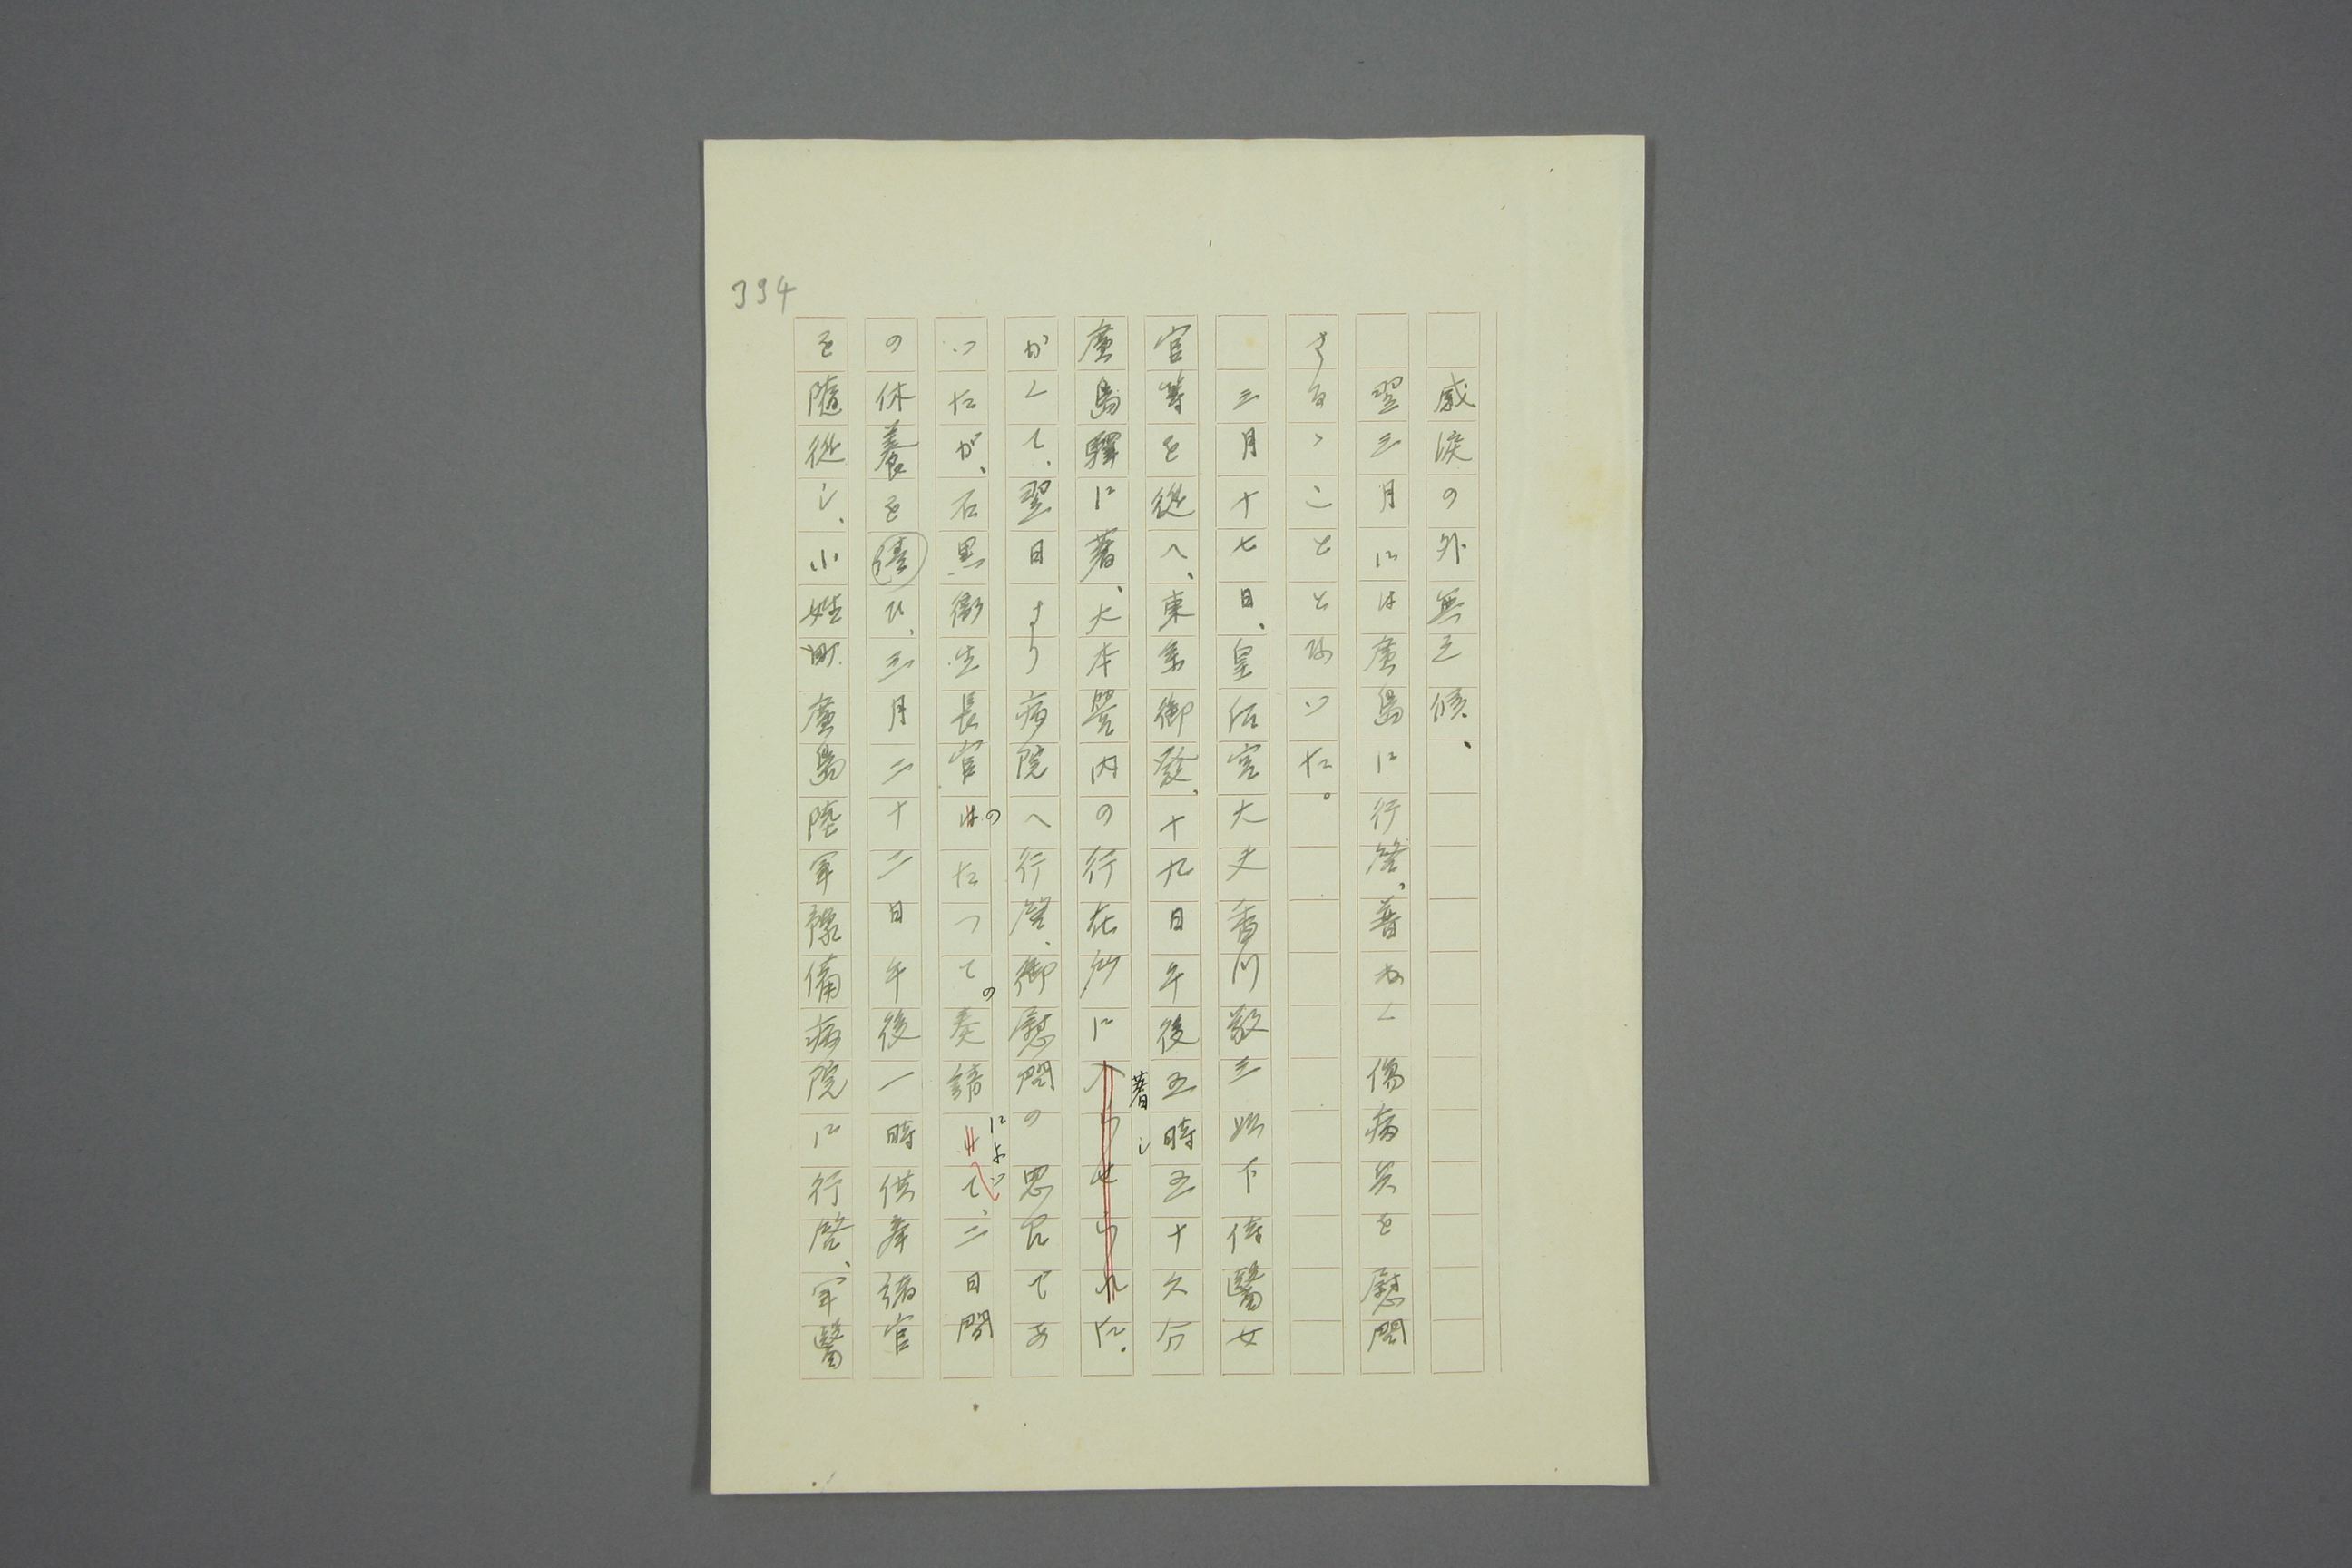 394
感涙の外無之候、
翌三月には廣島に行啓、普ねく傷病兵を慰問
さるゝことゝなつた。
三月十七日、皇后宮大夫香川敬三以下侍醫女
官等を從へ、東京御發、十九日午後五時五十久分
廣島驛に著、大本營内の行在所に入らせられた。
著し
かくて、翌日より病院へ行啓、御慰問の思召であ
つたが、石黒衞生長官はたつて奏請して、二日間
の の によつ
の休養を請ひ、三月二十二日午後一時供奉諸官
を隨從し、小姓町廣島陸軍豫備病院に行啓、軍醫